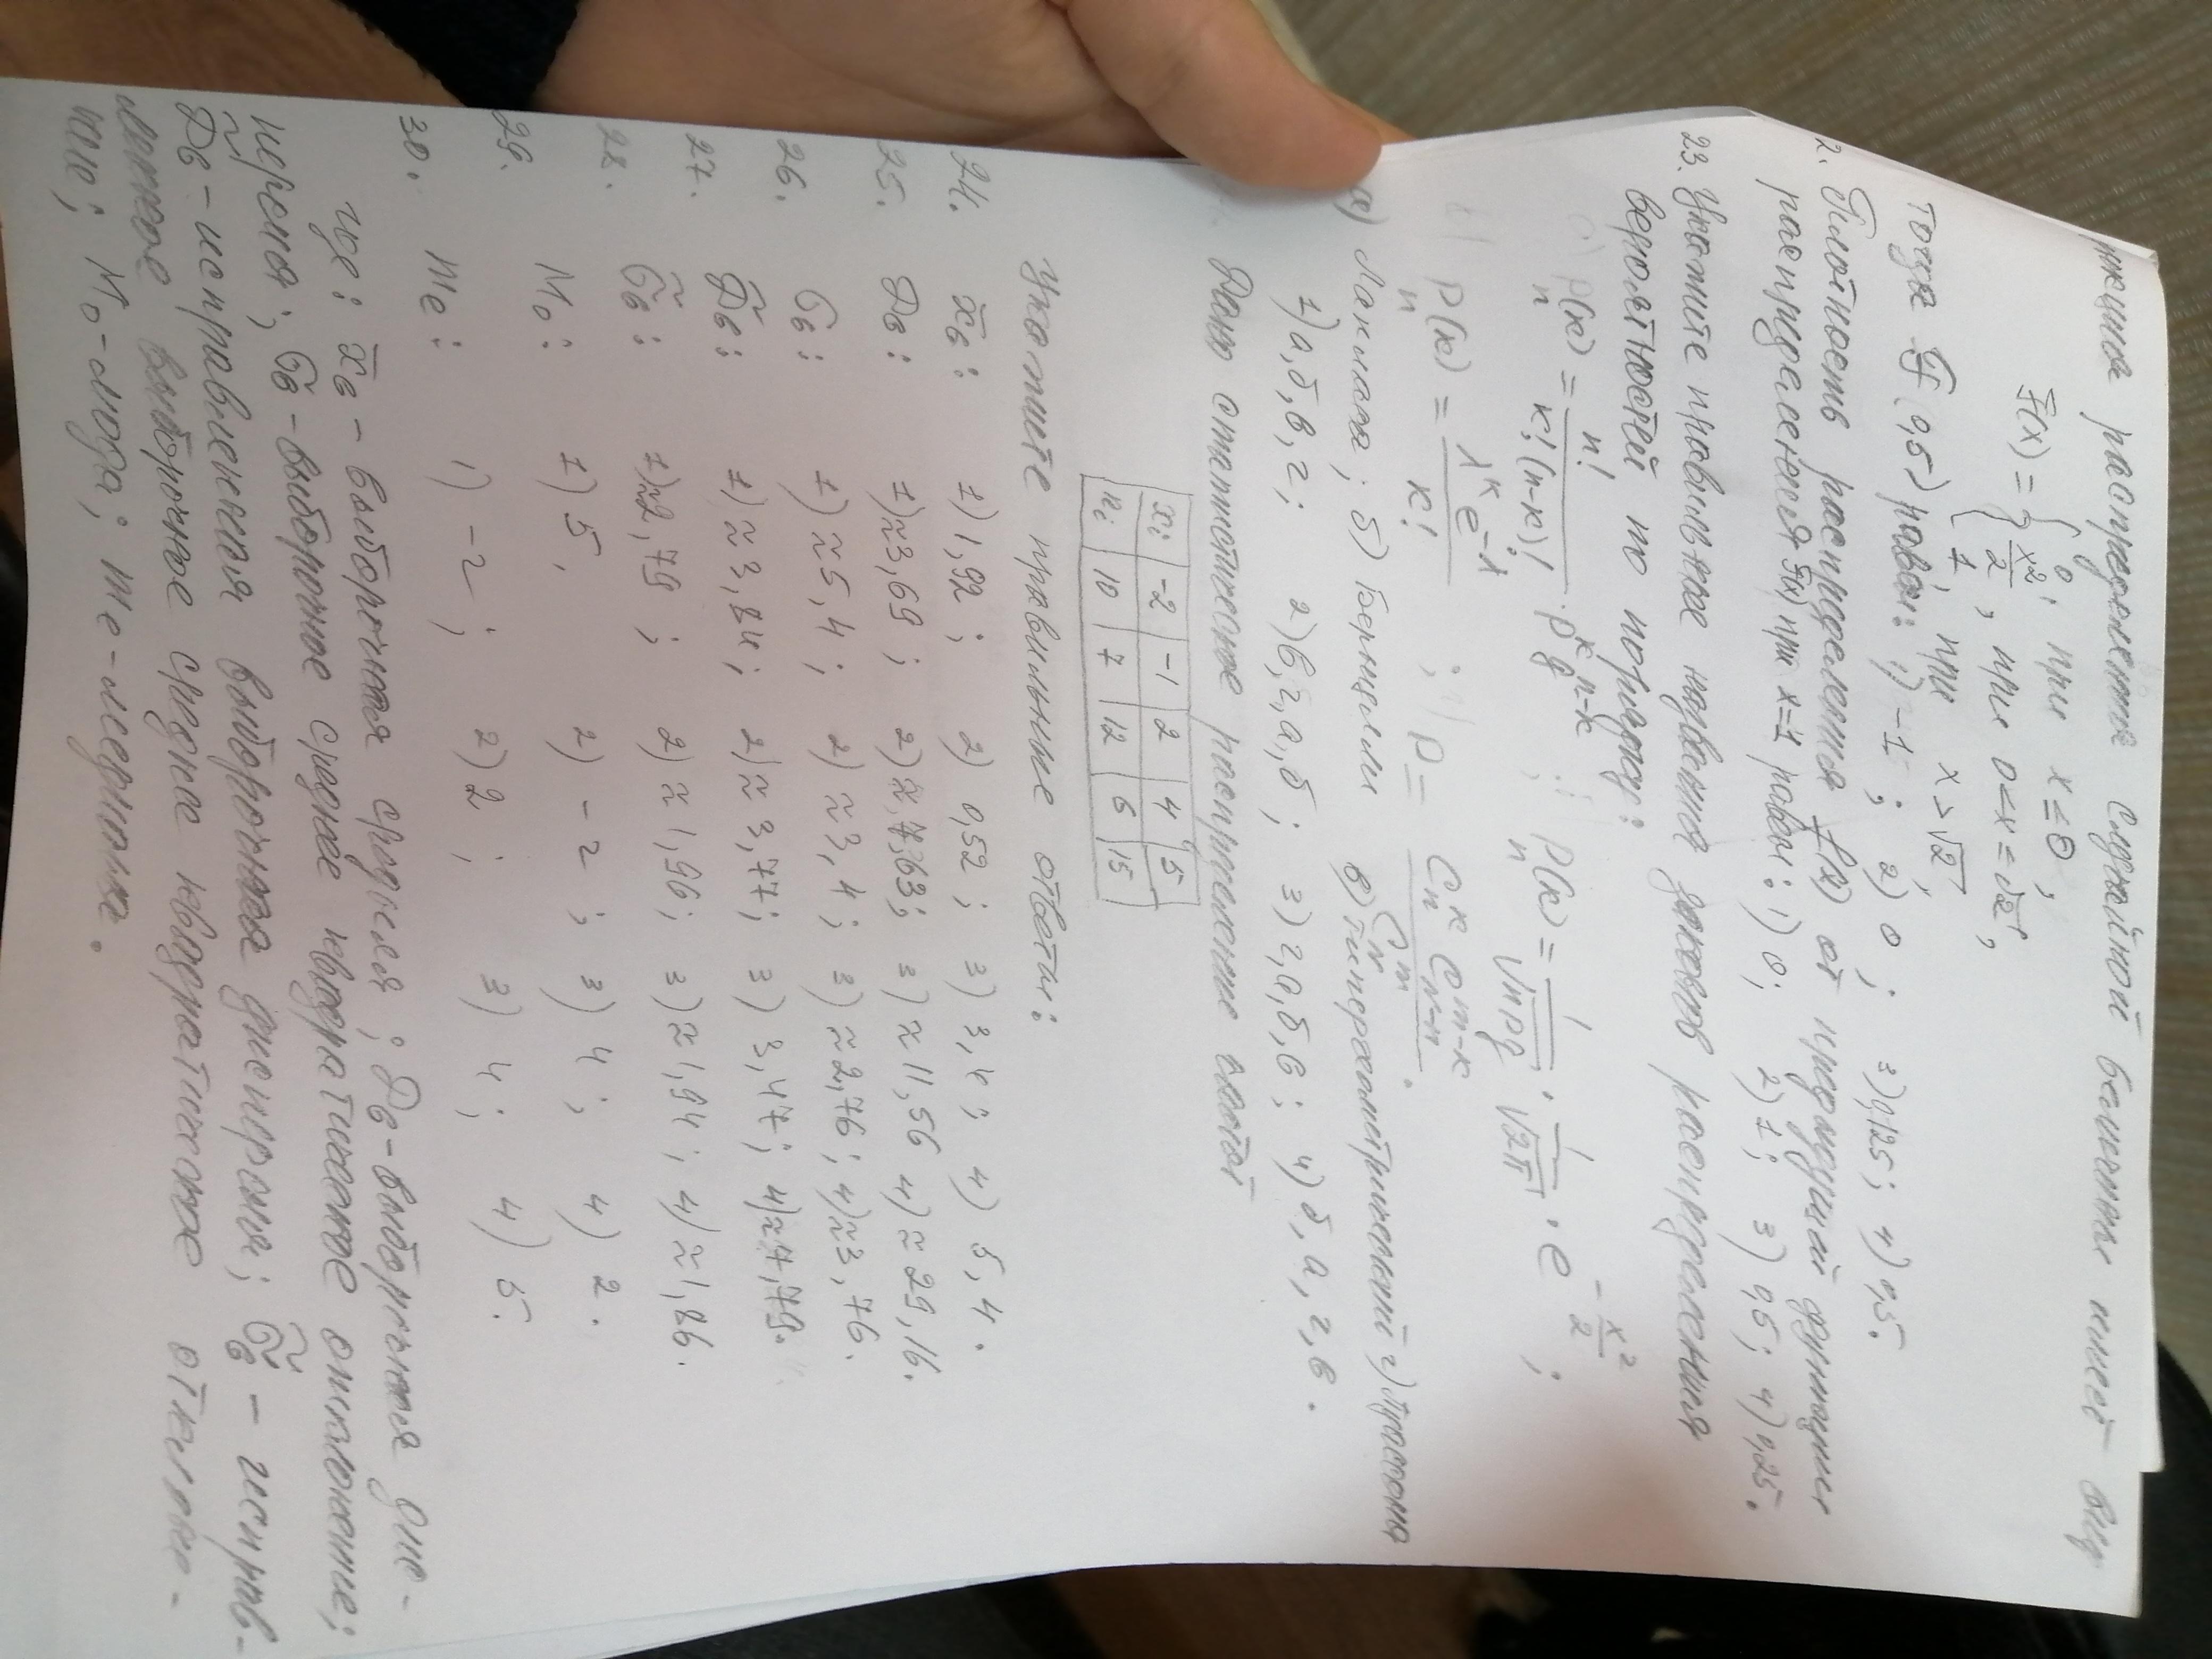 распределения случайной величины имеет вид
F(x) = { 0, при x ≤ 0,
x²/2, при 0 < x = √2,
1, при x > √2
тогда F(0,5) равен: 1) -1; 2) 0; 3) 0,125; 4) 0,5.
2. Плотность распределения f(x) от предыдущей функции
распределения F(x) при x=1 равен: 1) 0, 2) 1; 3) 0,5; 4) 0,25.
23. Укажите правильные названия законов распределения
вероятностей по порядку:
Pn(k) = n! / k!(n-k)! · p^k q^(n-k) ; Pn(k) = 1/√npq · 1/√2π · e^(-x²/2) ;
Pn(k) = λ^k e^(-λ) / k! ; P =
а) Лапласа; б) Бернулли в) гипергеометрический г) Пуассона
1) а, б, в, г; 2) в, г, а, б; 3) г, а, б, в; 4) б, а, г, в.
Дано статистическое распределение частот
xi | -2 | -1 | 2 | 4 | 5
ni | 10 | 7 | 12 | 6 | 15
Укажите правильные ответы:
24. x̄в: 1) 1,92; 2) 0,52; 3) 3,4; 4) 5,4.
25. Dв: 1) ≈3,69; 2) ≈7,63; 3) ≈11,56 4) ≈29,16.
26. σв: 1) ≈5,4; 2) ≈3,4; 3) ≈2,76; 4) ≈3,76.
27. D̃в: 1) ≈3,84; 2) ≈3,77; 3) 3,47; 4) ≈7,79.
28. σ̃в: 1) ≈2,79; 2) ≈1,96; 3) ≈1,94; 4) ≈1,86.
29. Mo: 1) 5, 2) -2; 3) 4; 4) 2.
30. Me: 1) -2; 2) 2; 3) 4; 4) 5.
где: x̄в - выборочная средняя; Dв - выборочная дис-
персия; σв - выборочное среднее квадратическое отклонение;
D̃в - исправленная выборочная дисперсия; σ̃в - исправ-
ленное выборочное среднее квадратическое отклоне-
ние; Mo - мода; me - медиана.